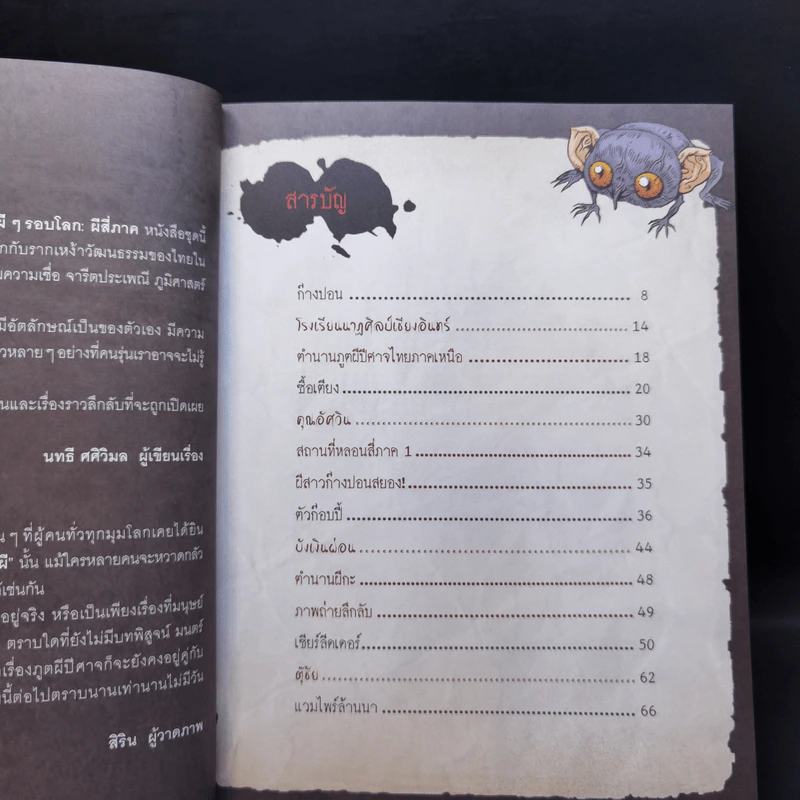 ผี ๆ รอบโลก: ผีสี่ภาค หนังสือชุดนี้
กกับรากเหง้าวัฒนธรรมของไทยใน
ความเชื่อ จารีตประเพณี ภูมิศาสตร์
มีอัตลักษณ์เป็นของตัวเอง มีความ
วหลาย ๆ อย่างที่คนรุ่นเราอาจจะไม่รู้
นและเรื่องราวลึกลับที่จะถูกเปิดเผย
นทธี ศศิวิมล ผู้เขียนเรื่อง
น ๆ ที่ผู้คนทั่วทุกมุมโลกเคยได้ยิน
ผี" นั้น แม้ใครหลายคนจะหวาดกลัว
ช่นกัน
อยู่จริง หรือเป็นเพียงเรื่องที่มนุษย์
ตราบใดที่ยังไม่มีบทพิสูจน์ มนตร์
เรื่องภูตผีปีศาจก็จะยังคงอยู่คู่กับ
นี้ต่อไปตราบนานเท่านานไม่มีวัน
สิริน ผู้วาดภาพ
สารบัญ
ก๊างปอน 8
โรงเรียนนาฏศิลป์เชียงอินทร์ 14
ตำนานภูตผีปีศาจไทยภาคเหนือ 18
ซื้อเตียง 20
คุณอัศวิน 30
สถานที่หลอนสี่ภาค 1 34
ผีสาวก๊างปอนสยอง! 35
ตัวก๊อบปี้ 36
บังเพินผ่อน 44
ตำนานผีกะ 48
ภาพถ่ายลึกลับ 49
เชียร์ลีดเดอร์ 50
ตุ๊ธัย 62
แวมไพร์ล้านนา 66